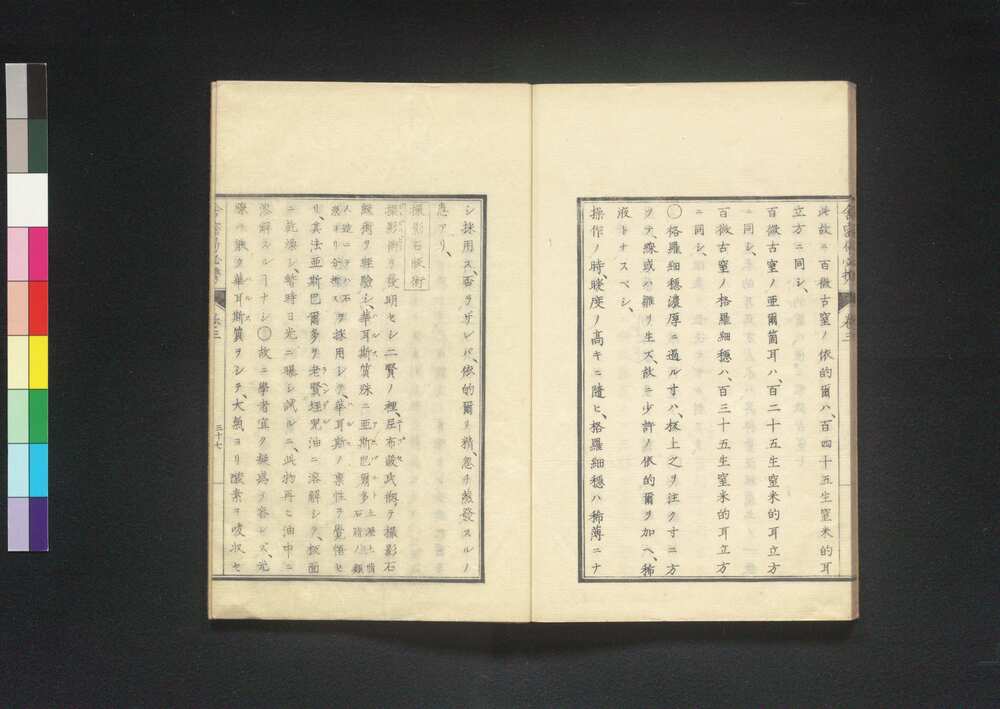 此故ニ百微古窒ノ依的爾ハ、百四十五生窒米的耳
立方ニ同シ、
百微古窒ノ亜爾箇耳ハ、百二十五生窒米的耳立方
ニ同シ、
百微古窒ノ格羅細穏ハ、百三十五生窒米的耳立方
ニ同シ、
◯格羅細穏濃厚ニ過ル寸ハ、板上之ヲ注クすニ方
ヲテ、線或ハ雛ヲ生ズ、故ニ少許ノ依的爾ヲ加ヘ、稀
液トナスベシ、
操作ノ時、暖度ノ高キニ隨ヒ、格羅細穏ハ稀薄ニナ
シ採用ス、否ラザレバ、依的爾ヲ精、忽チ蒸發スルノ
患アリ、
撮影石版術
撮影術ヲ發明セシ二賢ノ裡、尼布蔽氏傍ヲ撮影石
版術ヲ經驗シ、華耳斯質殊ニ亜斯巴爾多
人造ニテハ石
炭ヨリ分
ヲ採用シテ、華耳斯ノ稟性ヲ覺悟セ
リ、其法亜斯巴爾多ヲ老賢垤児油ニ溶解シテ、板面
ニ乾燥シ、暫時日光ニ曝シ試ルニ、此物再ヒ油中ニ
溶解スル寸ナシ◯故ニ學者宜ク疑惑ヲ容レズ、光
線ハ能ク華耳斯質ヲシテ、大氣ヨリ酸素ヲ吸収セ
三十七